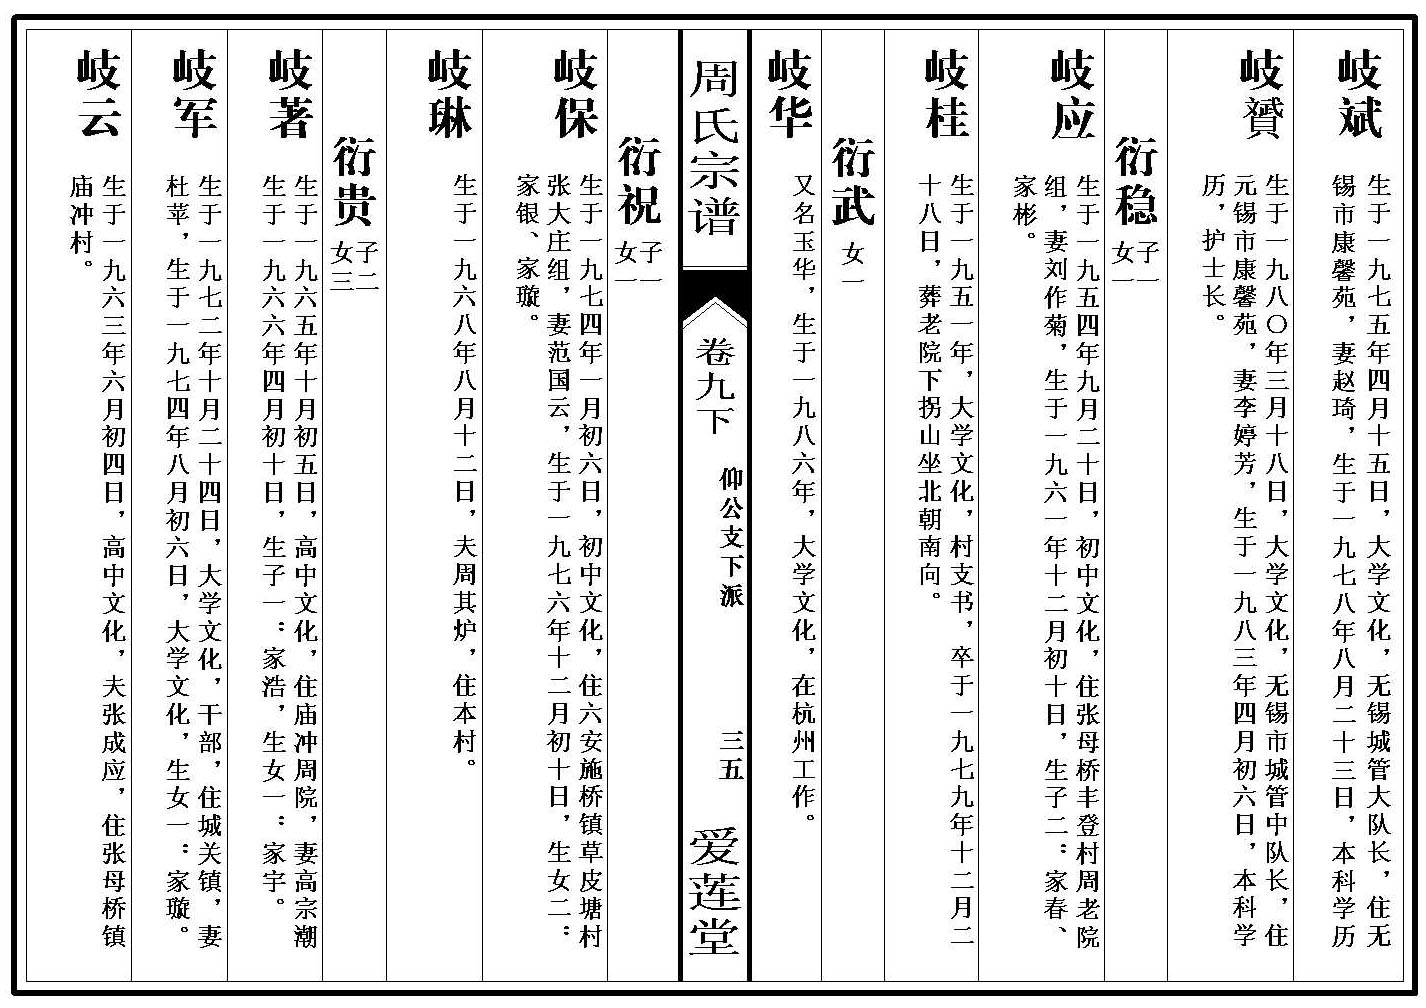 岐斌
生于一九七五年四月十五日，大学文化，无锡城管大队长，住无
锡市康馨苑，妻赵琦，生于一九七八年八月二十三日，本科学历
岐赟
生于一九八〇年三月十八日，大学文化，无锡市城管中队长，住
元锡市康馨苑，妻李婷芳，生于一九八三年四月初六日，本科学
历，护士长。
衍稳
子一
女一
岐应
生于一九五四年九月二十日，初中文化，住张母桥丰登村周老院
组，妻刘作菊，生于一九六一年十二月初十日，生子二：家春、
家彬。
岐桂
生于一九五一年，大学文化，村支书，卒于一九七九年十二月二
十八日，葬老院下拐山坐北朝南向。
衍武
女一
岐华
又名玉华，生于一九八六年，大学文化，在杭州工作。
周氏宗谱
卷九下
仰公支下派
三五
爱莲堂
衍祝
子一
女一
岐保
生于一九七四年一月初六日，初中文化，住六安施桥镇草皮塘村
张大庄组，妻范国云，生于一九七六年十二月初十日，生女二：
家银、家璇。
岐琳
生于一九六八年八月十二日，夫周其炉，住本村。
衍贵
子二
女三
岐著
生于一九六五年十月初五日，高中文化，住庙冲周院，妻高宗潮
生于一九六六年四月初十日，生子一：家浩，生女一：家宇。
岐军
生于一九七二年十月二十四日，大学文化，干部，住城关镇，妻
杜苹，生于一九七四年八月初六日，大学文化，生女一：家璇。
岐云
生于一九六三年六月初四日，高中文化，夫张成应，住张母桥镇
庙冲村。